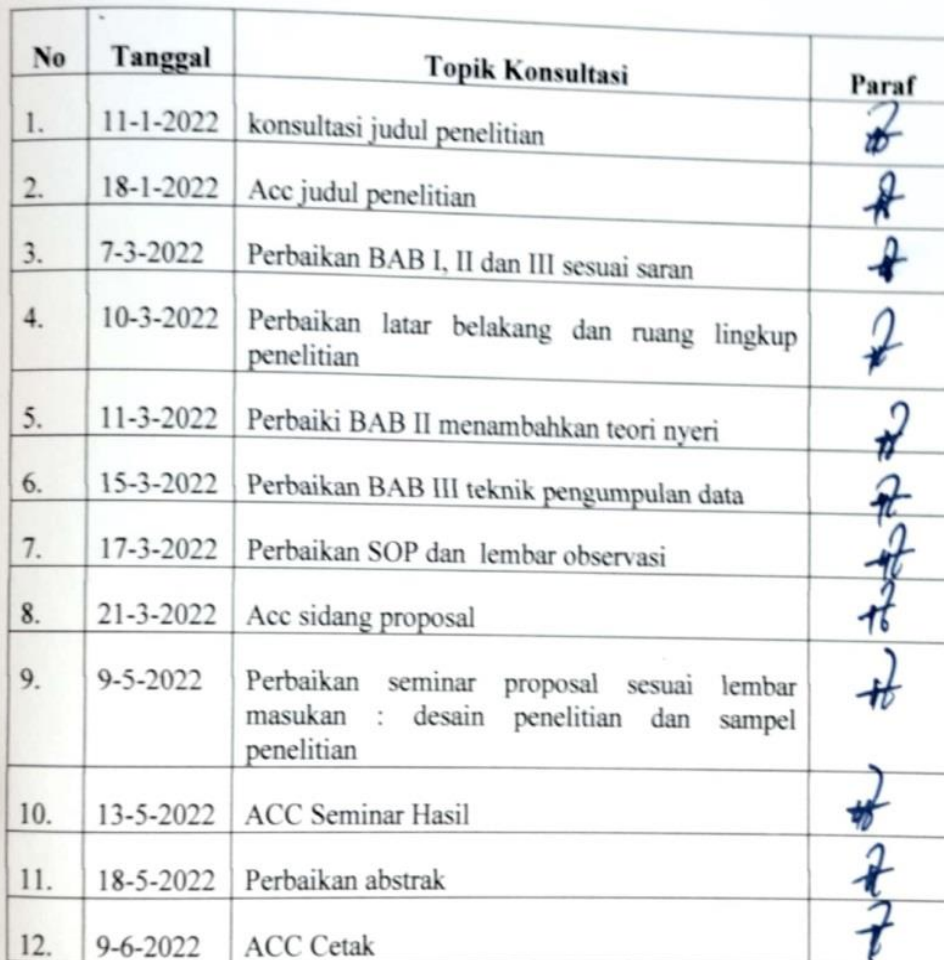 No Tanggal Topik Konsultasi Paraf
1. 11-1-2022 konsultasi judul penelitian
2. 18-1-2022 Acc judul penelitian
3. 7-3-2022 Perbaikan BAB I, II dan III sesuai saran
4. 10-3-2022 Perbaikan latar belakang dan ruang lingkup
penelitian
5. 11-3-2022 Perbaiki BAB II menambahkan teori nyeri
6. 15-3-2022 Perbaikan BAB III teknik pengumpulan data
7. 17-3-2022 Perbaikan SOP dan lembar observasi
8. 21-3-2022 Acc sidang proposal
9. 9-5-2022 Perbaikan seminar proposal sesuai lembar
masukan : desain penelitian dan sampel
penelitian
10. 13-5-2022 ACC Seminar Hasil
11. 18-5-2022 Perbaikan abstrak
12. 9-6-2022 ACC Cetak